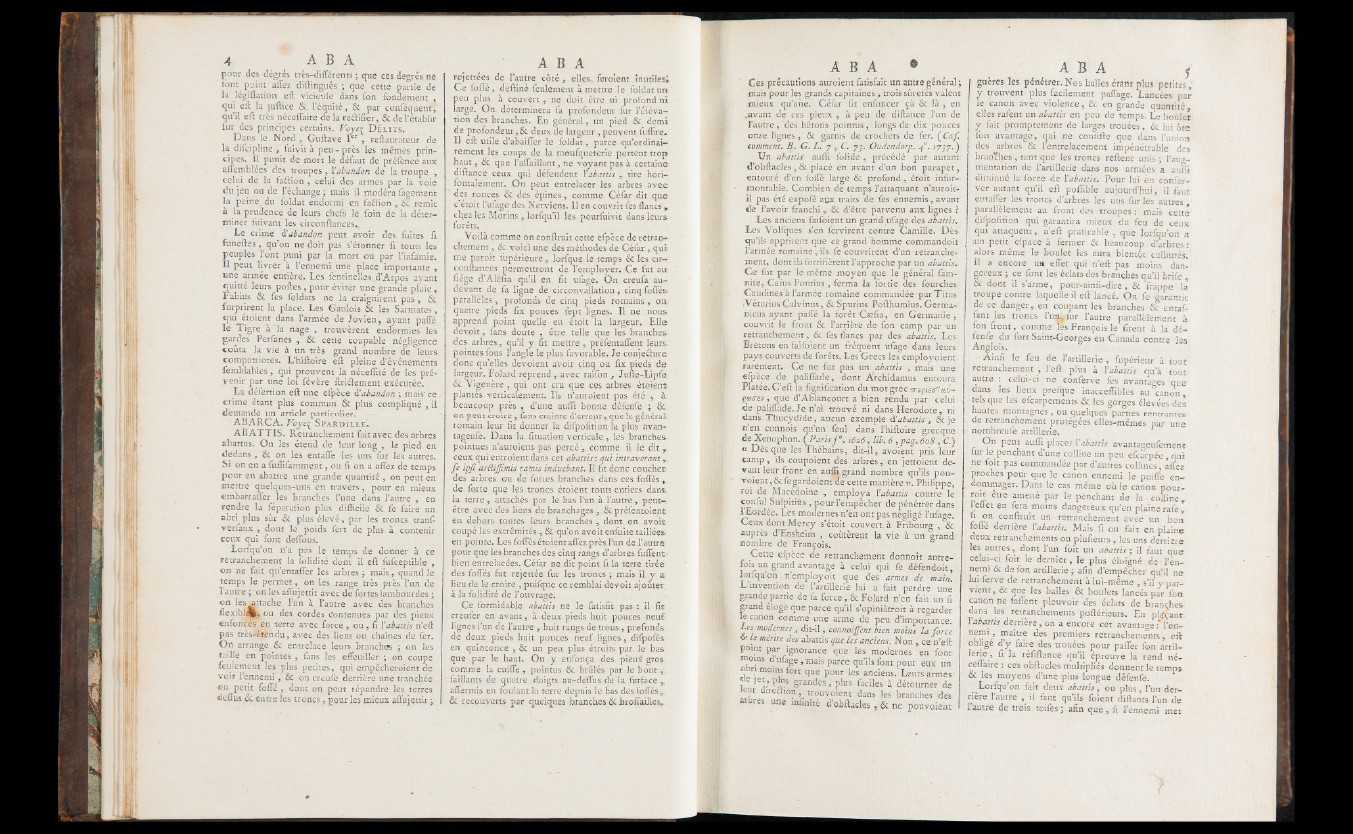 4 ABA
pour des dégrés très-différents ; que ces degrés ne
sont point assez distingués ; que cette partie de
la législation est vicieuse dans son fondement ,
qui est la justice & l'équité, & par conséquent,
qu'il est très nécessaire de la rectifier, & de l'établir
sur des principes certains. Voyez DÉLITS.
Dans le Nord , Gustave Ier , restaurateur de
la discipline , suivit à peu-près les mêmes prin-
cipes. Il punit de mort le défaut de présence aux
assemblées des troupes, l'abandon de la troupe ,
celui de la faction , celui des armes par la voie
du jeu ou de l'échange ; mais il modéra sagement
la peine du soldat endormi en faction , & remit
à la prudence de leurs chefs le soin de la déter-
miner suivant les circonstances.
Le crime d'abandon peut avoir des suites si
funestes, qu'on ne doit pas s'étonner si tous les
peuples l'ont puni par la mort ou par l'infamie.
Il peut livrer à l'ennemi une place importante ,
une armée entière. Les sentinelles d'Atpos ayant
quitté leurs postes, pour éviter une grande pluie,
Fabius & ses soldats ne la craignirent pas , &
surprirent la place. Les Gaulois & les Sarmates ,
qui étoient dans l'armée de Jovien, ayant passé
le Tigre à la nage , trouvèrent endormies les
gardes Persanes , & cette coupable négligence
coûta la vie à un très grand nombre de leurs
compatriotes. L'histoire est pleine d'événements
semblables, qui prouvent la nécessité de les pré-
venir par une loi sévère strictement exécutée.
La désertion est une espèce d'abandon ; mais ce
crime étant plus commun & plus compliqué , il
demande un article particulier.
ABARCA. Voyez SPARDILLE.
ABATTIS. Retranchement fait avec des arbres
abattus. On les étend de leur long , le pied en
dedans , & on les entasse les uns sur les autres.
Si on en a suffisamment , ou si on a assez de temps
pour en abattre une grande quantité , on peut en
mettre quelques-uns en travers, pour en mieux
embarrasser les branches l'une dans l'autre , en
rendre la séparation plus difficile & se faire un
abri plus sûr & plus élevé, par les troncs trans-
versaux , dont le poids sert de plus à contenir
ceux qui sont dessous.
Lorsqu'on n'a pas le temps de donner à ce
retranchement la solidité dont il est susceptible ,
on ne fait qu'entasser les arbres ; mais, quand le
temps le permet, on les range très près l'un de
l'autre ; on les assujettit avec de fortes lambourdes ;
on les attache l'un à l'autre avec des branches
flexibles, ou des cordes contenues par des pieux
enfoncés en terre avec force , ou, si l'abattis n'est
pas très-étendu, avec des liens ou chaînes de fer.
On arrange & entrelace leurs branches ; on les
taille en pointes , sans les effeuiller ; on coupe
seulement les plus petites, qui empêcheroient de
voir l'ennemi , & on creuse derrière une tranchée
ou petit fossé , dont on peut répandre les terres
dessus & entre les troncs, pour les mieux assujettir ;
ABA
rejettées de l'autre côté , elles seroient inutiles.
Ce fossé, destiné seulement à mettre le soldat un
peu plus à couvert , ne doit être ni profond ni
large. On déterminera sa profondeur sur l'éléva-
tion des branches. En général, un pied & demi
de profondeur, & deux de largeur, peuvent suffire.
Il est utile d'abaisser le soldat, parce qu'ordinai-
rement les coups de la mousqueterie portent trop
haut, & que l'assaillant, ne voyant pas à certaine
distance ceux qui défendent l'abattis , tire hori-
sontalement. On peut entrelacer les arbres avec
des ronces & des épines , comme César dit que
c'étoit l'usage des Nerviens. Il en couvrit ses flancs,
chez les Morins, lorsqu'il les poursuivit dans leurs
forêts.
Voilà comme on construit cette espèce de retran-
chement, & voici une des méthodes de César, qui
me paroit supérieure, lorsque le temps & les cir-
constances permettront de l'employer. Ce fut au
siége d'Alésia qu'il en fit usage. On creusa au-
devant de sa ligne de circonvallation, cinq fossés
parallèles, profonds de cinq pieds romains , ou
quatre pieds six pouces sept lignes. Il ne nous
apprend point quelle en étoit la largeur. Elle
devoit, sans doute , être telle que les branches
des arbres, qu'il y fit mettre, présentassent leurs
pointes sous l'angle le plus favorable. Je conjecture
donc qu'elles devoient avoir cinq ou six pieds de
largeur. Folard reprend, avec raison, Juste-Lipse
& Vigenère, qui ont cru que ces arbres étoient
plantés verticalement. Ils n'auroient pas été , à
beaucoup près , d'une aussi bonne défense ; &
on peut croire, sans crainte d'erreur, que le général
romain leur fit donner la disposition la plus avan-
tageuse. Dans la situation verticale, les branches
pointues n'auroient pas percé, comme il le dit,
ceux qui entroient dans cet abattis : qui intraverant,
se ipsi acutissimis ramis induebant. Il fit donc coucher
des arbres ou de fortes branches dans ces fossés,
de sorte que les troncs étoient tous entiers dans
la terre , attachés par le bas l'un à l'autre , peut-
être avec des liens de branchages, & présentoient
en dehors toutes leurs branches , dont on avoit
coupé les extrémités, & qu'on avoit ensuite taillées
en pointe. Les fossés étoient assez près l'un de l'autre
pour que les branches des cinq rangs d'arbres fussent
bien entrelacées. César ne dit point si la terre tirée
des fossés fut rejettée sur les troncs ; mais il y a
lieu de le croire, puisque ce remblai devoit ajoûter
à la solidité de l'ouvrage.
Ce formidable abattis ne le satisfit pas : il fit
creuser en avant, à deux pieds huit pouces neuf
lignes l'un de l'autre, huit rangs de trous, profonds
de deux pieds huit pouces neuf lignes, disposés
en quinconce , & un peu plus étroits par le bas
que par le haut. On y enfonça des pieux gros
comme la cuisse , pointus & brûlés par le bout ,
saillants de quatre doigts au-dessus de la surface ,
affermis en foulant la terre depuis le bas des fossés,
& recouverts par quelques branches & brossailles.
ABA
Ces précautions auroient satisfait un autre général ;
mais pour les grands capitaines, trois sûretés valent
mieux qu'une. César fit enfoncer çà & là, en
avant de ces pieux , à peu de distance l'un de
l'autre, des bâtons pointus, longs de dix pouces
onze lignes, & garnis de crochets de fer. (Cæs.
comment. B. G. L. 7, C. 73. Oudendorp. 4°. 1737.)
Un abattis aussi solide , précédé par autant
d'obstacles, & placé en avant d'un bon parapet,
entouré d'un fossé large & profond, étoit insur-
montable. Combien de temps l'attaquant n'auroit-
il pas été exposé aux traits de ses ennemis, avant
de l'avoir franchi, & d'être parvenu aux lignes ?
Les anciens faisoient un grand usage des abattis.
Les Volsques s'en servirent contre Camille. Dès
qu'ils apprirent que ce grand homme commandoit
l'armée romaine, ils se couvrirent d'un retranche-
ment, dont ils fortifièrent l'approche par un abattis.
Ce fut par le même moyen que le général sam-
nite, Caïus Pontius , ferma la sortie des fourches
Caudines à l'armée romaine commandée par Titus
Veturius Calvinus, & Spurius Posthumus. Germa-
nicus ayant passé la forêt Cæsia, en Germanie,
couvrit le front & l'arrière de son camp par un
retranchement, & ses flancs par des abattis. Les
Bretons en faisoient un fréquent usage dans leurs
pays couverts de forêts. Les Grecs les employoient
rarement. Ce ne fut pas un abattis , mais une
espèce de palissade, dont Archidamus entoura
Platée. C'est la signification du mot grec
, que d'Ablancourt a bien rendu par celui
de palissade. Je n'ai trouvé ni dans Herodote, ni
dans Thucydide, aucun exemple d'abattis, & je
n'en connois qu'un seul dans l'histoire grecque
de Xenophon. (Paris f°. 1626, lib. 6, pag. 608, C.)
« Dès que les Thébains, dit-il, avoient pris leur
camp, ils coupoient des arbres, en jettoient de-
vant leur front en aussi grand nombre qu'ils pou-
voient, & se gardoient de cette manière ». Philippe,
roi de Macédoine , employa l'abattis contre le
consul Sulpitius , pour l'empêcher de pénétrer dans
l'Eordée. Les modernes n'en ont pas négligé l'usage.
Ceux dont Mercy s'étoit couvert à Fribourg , &
auprès d'Ensheim , coûtèrent la vie à un grand
nombre de François.
Cette espèce de retranchement donnoit autre-
fois un grand avantage à celui qui se défendoit,
lorsqu'on n'employoit que des armes de main.
L'invention de l'artillerie lui a fait perdre une
grande partie de sa force, & Folard n'en fait un si
grand éloge que parce qu'il s'opiniâtroit à regarder
le canon comme une arme de peu d'importance.
Les modernes, dit-il, connoissent bien moins la force
& le mérite des abattis que les anciens. Non, ce n'est
point par ignorance que les modernes en font
moins d'usage, mais parce qu'ils sont pour eux un
abri moins fort que pour les anciens. Leurs armes
de jet, plus grandes, plus faciles à détourner de
leur direction, trouvoient dans les branches des
arbres une infinité d'obstacles, & ne pouvoient
ABA 5
guères les pénétrer. Nos balles étant plus petites,
y trouvent plus facilement passage. Lancées par
le canon avec violence, & en grande quantité,
elles rasent un abattis en peu de temps. Le boulet
y fait promptement de larges trouées, & lui ôte
son avantage, qui ne consiste que dans l'union
des arbres & l'entrelacement impénétrable des
branches, tant que les troncs restent unis ; l'aug-
mentation de l'artillerie dans nos armées a aussi
diminué la force de l'abattis. Pour lui en conser-
ver autant qu'il est possible aujourd'hui, il faut
entasser les troncs d'arbres les uns sur les autres ,
parallèlement au front des troupes : mais cette
disposition qui garantira mieux du feu de ceux
qui attaquent, n'est praticable , que lorsqu'on a
un petit espace à fermer & beaucoup d'arbres :
alors même le boulet les aura bientôt culbutés.
Il a encore un effet qui n'est pas moins dan-
gereux ; ce sont les éclats des branches qu'il brise,
& dont il s'arme, pour-ainsi-dire, & frappe la
troupe contre laquelle il est lancé. On se garantit
de ce danger, en coupant les branches & entas-
sant les troncs l'un sur l'autre parallèlement à
son front, comme les François le firent à la dé-
fense du fort Saint-Georges en Canada contre les
Anglois.
Ainsi le feu de l'artillerie , supérieur à tout
retranchement , l'est plus à l'abattis qu'à tout
autre : celui-ci ne conserve ses avantages que
dans les lieux presque inaccessibles au canon,
tels que les escarpements & les gorges élevées des
hautes montagnes, ou quelques parties rentrantes
de retranchement protégées elles-mêmes par une
nombreuse artillerie.
On peut aussi placer l'abattis avantageusement
sur le penchant d'une colline un peu escarpée, qui
ne soit pas commandée par d'autres collines, assez
proches pour que le canon ennemi le puisse en-
dommager. Dans le cas même où le canon pour-
roit être amené par le penchant de la colline,
l'effet en sera moins dangereux qu'en plaine rase,
si on construit un retranchement avec un bon
fossé derrière l'abattis. Mais si on fait en plaine
deux retranchements ou plusieurs, les uns derrière
les autres, dont l'un soit un abattis ; il faut que
celui-ci soit le dernier, le plus éloigné de l'en-
nemi & de son artillerie ; afin d'empêcher qu'il ne
lui serve de retranchement à lui-même , s'il y par-
vient, & que les balles & boulets lancés par son
canon ne fassent pleuvoir des éclats de branches
dans les retranchements postérieurs. En plaçant
l'abattis derrière, on a encore cet avantage : l'en-
nemi , maître des premiers retranchements, est
obligé d'y faire des trouées pour passer son artil-
lerie, si la résistance qu'il éprouve la rend né-
cessaire : ces obstacles multipliés donnent le temps
& les moyens d'une plus longue défense.
Lorsqu'on fait deux abattis, ou plus, l'un der-
rière l'autre , il faut qu'ils soient distants l'un de
l'autre de trois toises ; afin que, si l'ennemi met